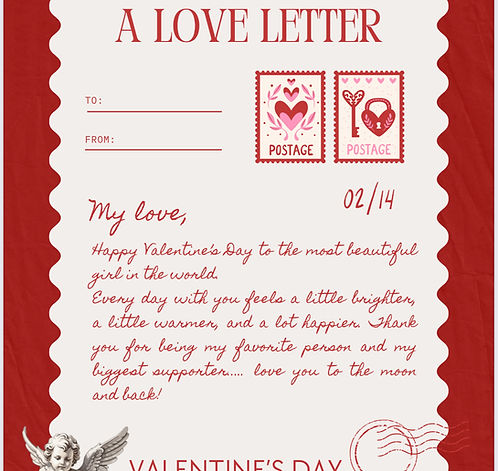 A LOVE LETTER
TO:
FROM:
POSTAGE
POSTAGE
02/14
My love,
Happy Valentine's Day to the most beautiful
girl in the world.
Every day with you feels a little brighter,
a little warmer, and a lot happier. Thank
you for being my favorite person and my
biggest supporter..... love you to the moon
and back!
VALENTINE'S DAY